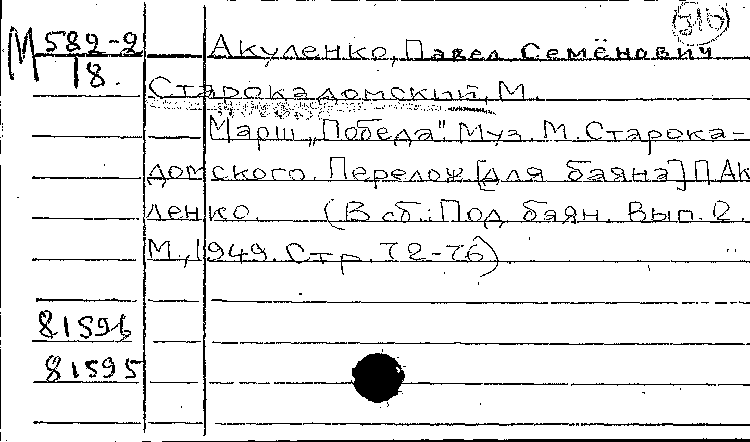 516
М 582-2
18.
Акуленко, Павел Семёнович
Старокадомский, М.
Марш „Победа". Муз. М. Старока-
домского. Перелож. [для баяна] П Ак
ленко. (В сб.: Под баян. Вып. 2.
М., 1949. Стр. 72-76)
81596
81595